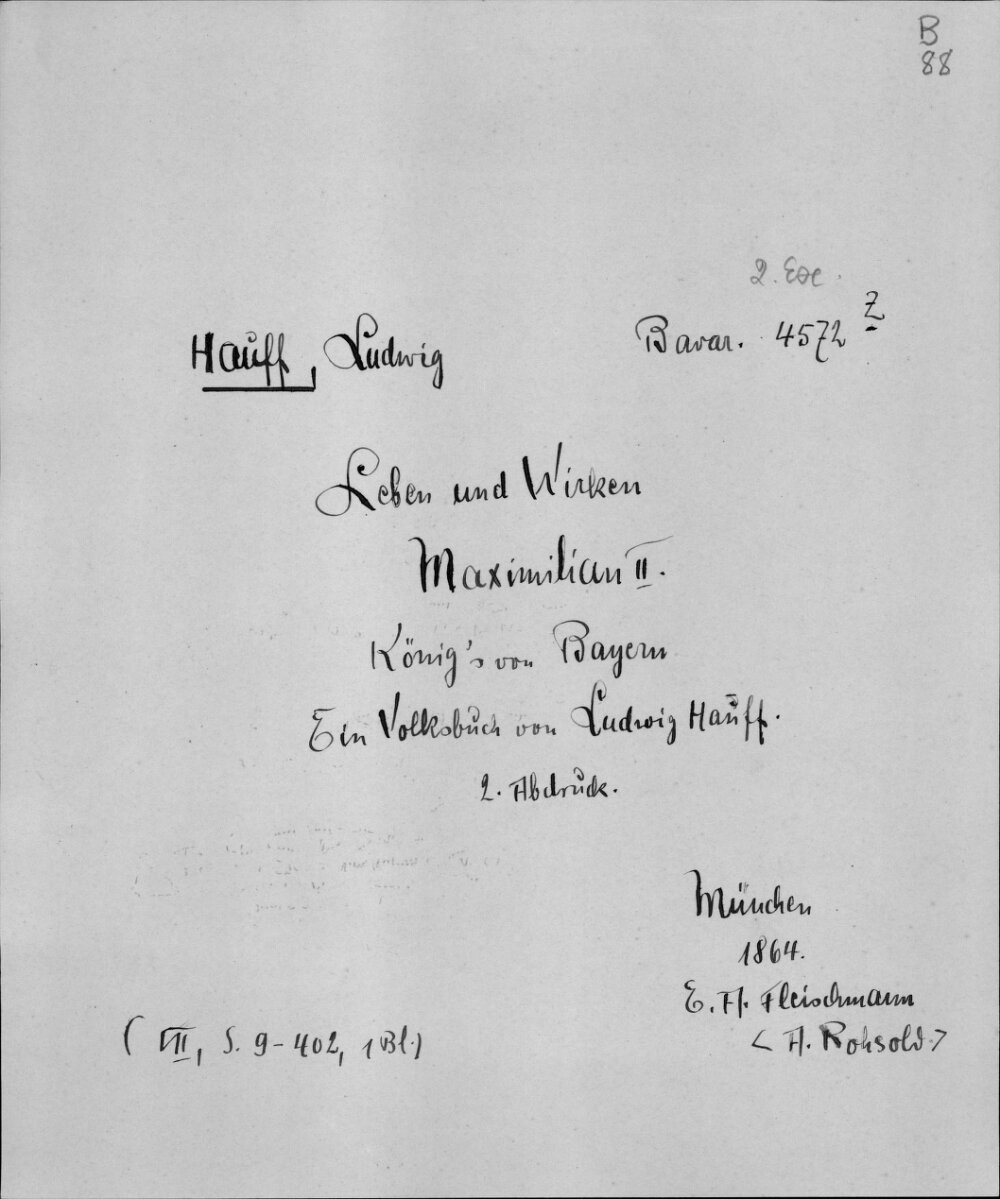 B
88
2. Exe.
Hauff, Ludwig
Bavar. 4572 Z
Leben und Wirken
Maximilian II.
König's von Bayern
Ein Volksbuch von Ludwig Hauff.
2. Abdruck.
München
1864.
E. A. Fleischmann
< A. Rohsold. >
( VII, S. 9-402, 1 Bl.)